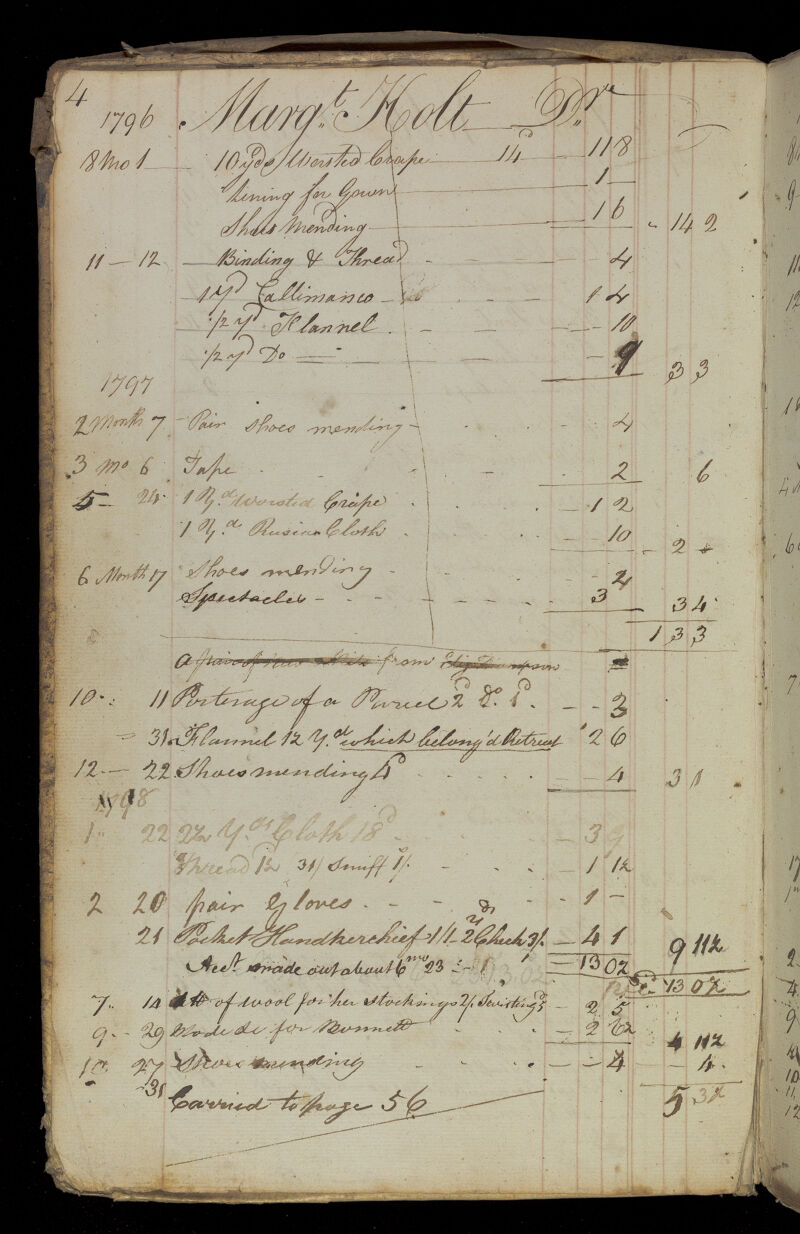 4
1796 Margt. Holt Dre
8 Mo 1 10 yds Worsted Crape 14d 11 8
Lining for Gown 1 —
Shoes Mending 1 6 - 14 2
11 — 12 Binding & Thread 4
1 yd Callimanco 1 4
1/2 yd Flannel 10
1/2 yd Do 9 3 3
1797
2 Month 7 Pair Shoes mending 4
3 Mo 6 Tape 2 6
5 — 24 1 Yd. Worsted Crape 1 2
1 Yd. Rusia Cloth 10 - 2 -
6 Month 17 Shoes mending 4
Spectacles 3 3 4
1 3 3
a pair of from
10 11 Porterage of a Parcel 2d Do 1d 3
31 Flannel 1 1/2 Yd which belong'd Retreat 2 6
12 — 22 Shoes mending 4d 4 3 1
1798
1 22 2 1/2 Yds Cloth 18d 3 9
Thread 1 1/2 31/ Snuff 1/. 1 1 1/2
2 20 pair Gloves 1 —
21 Pocket Handkerchief 1/1 - 2 yds Check 3/. 4 1 9 11 1/2
Act. made out about 6 mo 23 13 0 1/2
13 0 1/2
7 14 of wool for her stockings 2/. Twisting 5d 2 5
9 — 29 Mode &c for Bonnett 2 6 1/2 4 11 1/2
10 27 Shoes mending 4 4
5 3 1/2
31 Carried to page 56